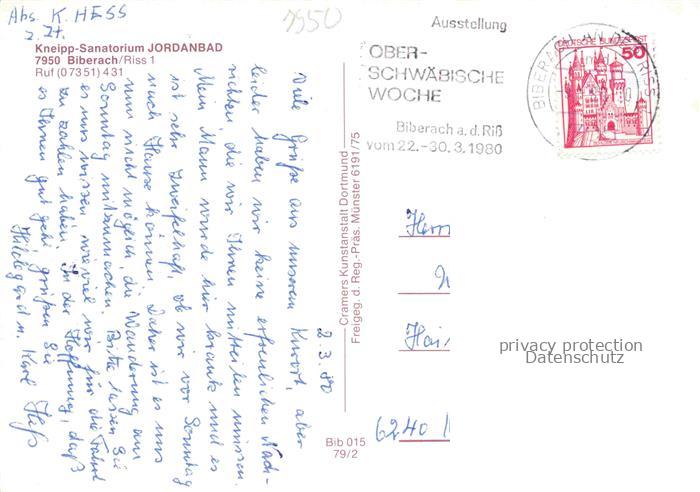 Abs. K. HESS
z. Zt.
7950
Kneipp-Sanatorium JORDANBAD
7950 Biberach/Riss 1
Ruf (07351) 431
2.3.80
Viele Grüße aus unserem Kurort, aber
leider haben wir keine erfreulichen Nach-
richten, die wir Ihnen mitteilen müssen.
Mein Mann wurde hier krank und es
ist sehr zweifelhaft, ob wir vor Sonntag
nach Hause können. Daher ist es uns
nun nicht möglich, die Wanderung am
Sonntag mitzumachen. Bitte lassen Sie
es uns wissen wieviel wir für die Fahrt
zu zahlen haben. In der Hoffnung, daß
es Ihnen gut geht, grüßen Sie
Hildegard u. Karl Heß
Cramers Kunstanstalt Dortmund
Freigeg. d. Reg.-Präs. Münster 6191/75
Bib 015
79/2
Ausstellung
OBER-
SCHWÄBISCHE
WOCHE
Biberach a.d. Riß
vom 22.-30.3.1980
BIBERACH AN DER RISS
DEUTSCHE BUNDESPOST
50
Herrn
Hai
6240
privacy protection
Datenschutz